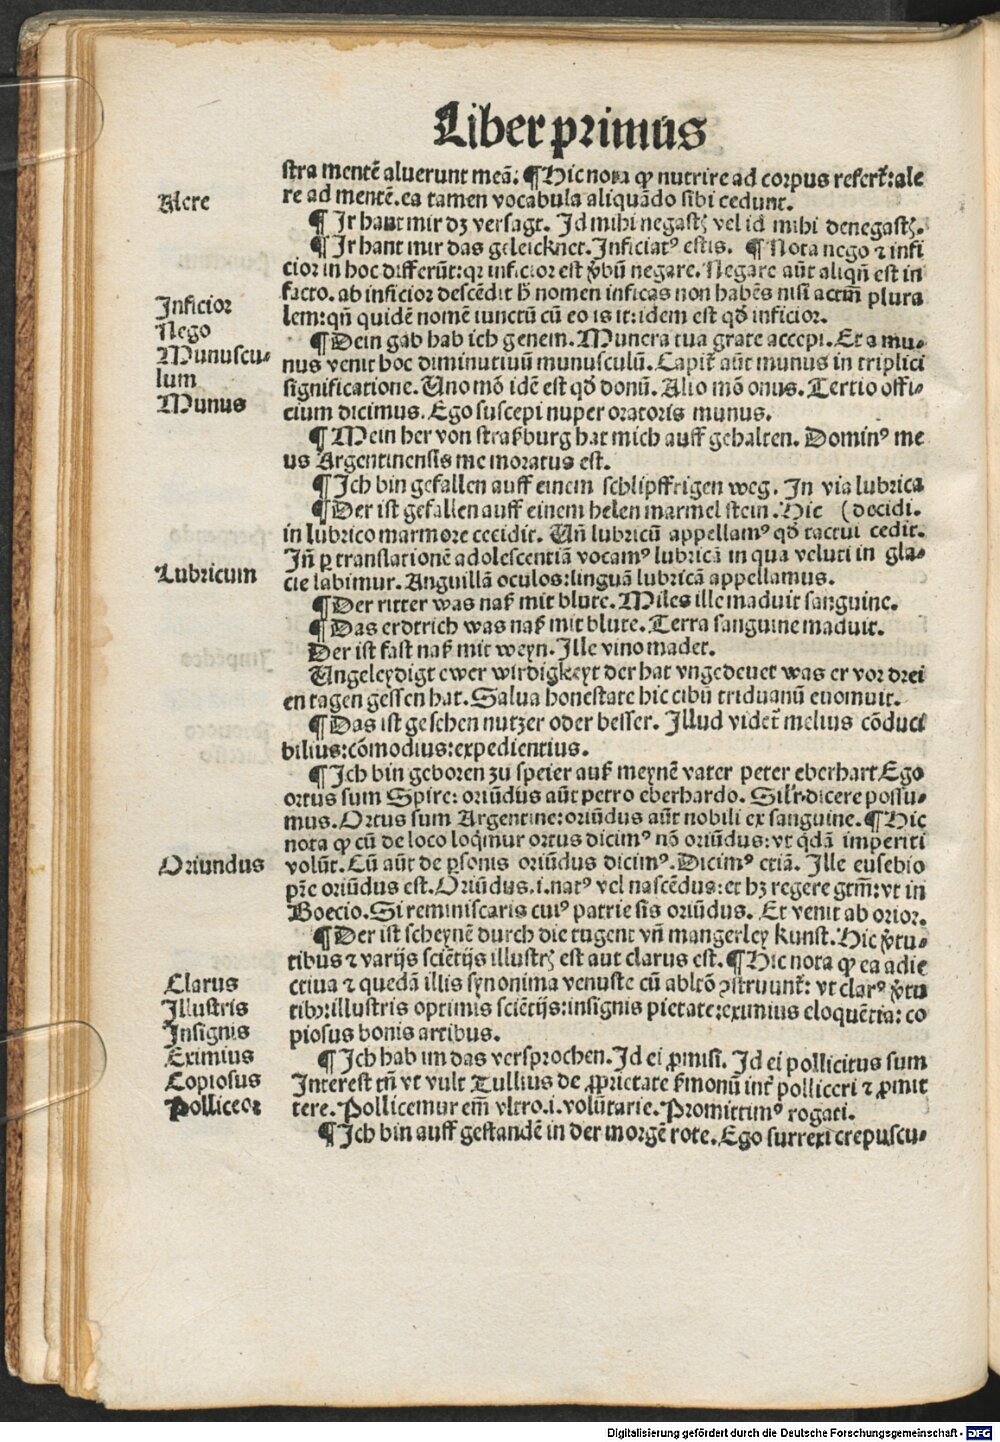 Liber primus
stra mentē aluerunt meā: ¶ Hic nota ꝙ nutrire ad corpus refert᷑: ale
Alere
re ad mentē. ea tamen vocabula aliquādo sibi cedunt.
¶ Ir hant mir dz versagt. Id mihi negastꝭ vel id mihi denegastꝭ.
¶ Ir hant mir das geleicknet. Inficiatꝰ estis. ¶ Nota nego ⁊ infi
cior in hoc differūt: qr inficior est v̄bū negare. Negare aūt aliqn̄ est in
Inficior
facto. ab inficior descēdit h̄ nomen inficas non habēs nisi actm̄ plura
Nego
lem: qn̄ quidē nomē iunctū cū eo is it: idem est qd̄ inficior.
Munuscu⸗
¶ Dein gab hab ich genem. Munera tua grate accepi. Et a mu⸗
nus venit hoc diminutiuū munusculū. Capit᷑ aūt munus in triplici
lum
significatione. Uno mō idē est qd̄ donū. Alio mō onus. Tertio offi⸗
Munus
cium dicimus. Ego suscepi nuper oratoris munus.
¶ Mein her von straßburg hat mich auff gehalten. Dominꝰ me
us Argentinensis me moratus est.
¶ Ich bin gefallen auff einem schlipffrigen weg. In via lubrica
¶ Der ist gefallen auff einem helen marmel stein. Hic (decidi.
in lubrico marmore cecidit. Un̄ lubricū appellamꝰ qd̄ tactui cedit.
In̄ ꝑ translationē adolescentiā vocamꝰ lubricā in qua veluti in gla⸗
Lubricum
cie labimur. Anguillā oculos: linguā lubricā appellamus.
¶ Der ritter was naß mit blute. Miles ille maduit sanguine.
¶ Das erdtrich was naß mit blute. Terra sanguine maduit.
Der ist fast naß mit weyn. Ille vino madet.
Ungeleydigt ewer wirdigkeyt der hat vngedeuet was er vor drei
en tagen gessen hat. Salua honestate hic cibū triduanū euomuit.
¶ Das ist gesehen nutzer oder besser. Illud videt᷑ melius cōduci
bilius: cōmodius: expedientius.
¶ Ich bin geboren zu speier auß meynē vater peter eberhart Ego
ortus sum Spire: oriūdus aūt petro eberhardo. Silr̄ dicere possu⸗
mus. Ortus sum Argentine: oriūdus aūt nobili ex sanguine. ¶ Hic
nota ꝙ cū de loco loq̄mur ortus dicimꝰ nō oriūdus: vt q̄dā imperiti
Oriundus
volūt. Cū aūt de ꝑsonis oriūdus dicimꝰ. Dicimꝰ etiā. Ille eusebio
pr̄e oriūdus est. Oriūdus. i. natꝰ vel nascēdus: et hz regere gtm̄: vt in
Boecio. Si reminiscaris cuiꝰ patrie sis oriūdus. Et venit ab orior.
¶ Der ist scheynē durch die tugent vn̄ mangerley kunst. Hic v̄tu⸗
tibus ⁊ varijs sciētijs illustrꝭ est aut clarus est. ¶ Hic nota ꝙ ea adie
Clarus
ctiua ⁊ quedā illis synonima venuste cū abltō ꝯstruunt᷑: vt clarꝰ v̄tu
Illustris
tibꝫ: illustris optimis sciētijs: insignis pietate: eximius eloquētia: co
Insignis
piosus bonis artibus.
Eximius
¶ Ich hab im das versprochen. Id ei ꝓmisi. Id ei pollicitus sum
Copiosus
Interest tn̄ vt vult Tullius de ꝓprietate ẜmonū int᷑ polliceri ⁊ ꝓmit
Polliceor
tere. Pollicemur em̄ vltro. i. volūtarie. Promittimꝰ rogati.
¶ Ich bin auff gestandē in der morgē rote. Ego surrexi crepuscu⸗
Digitalisierung gefördert durch die Deutsche Forschungsgemeinschaft - DFG